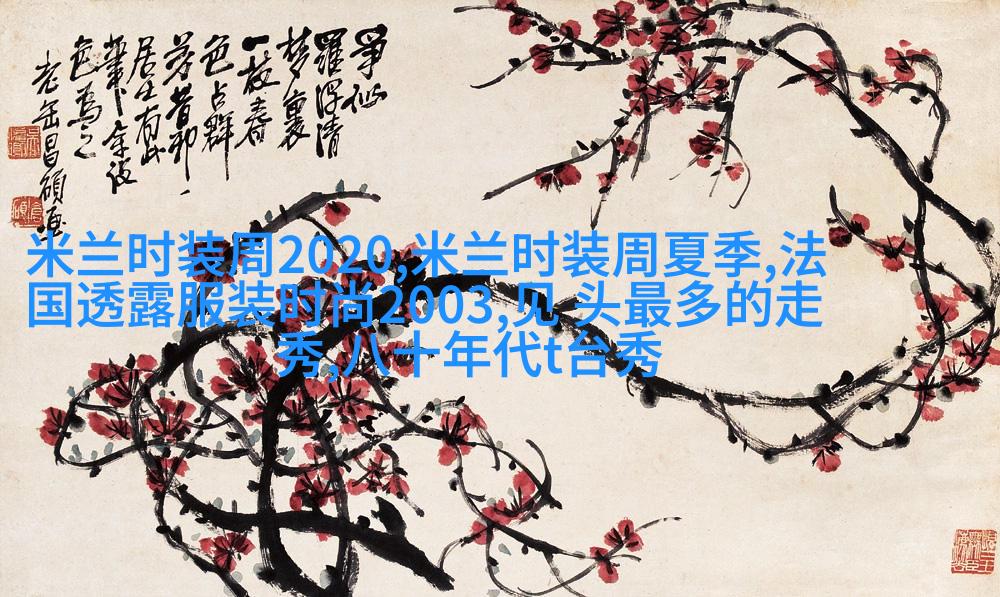 爭似
羅浮清
梦裏
一枝春
色占群
芳昔邪
居士有此
筆
色為之
老缶昌碩
米兰时装周2020,米兰时装周夏季,法
国透露服装时尚2003,见 头最多的走
秀,八十年代t台秀